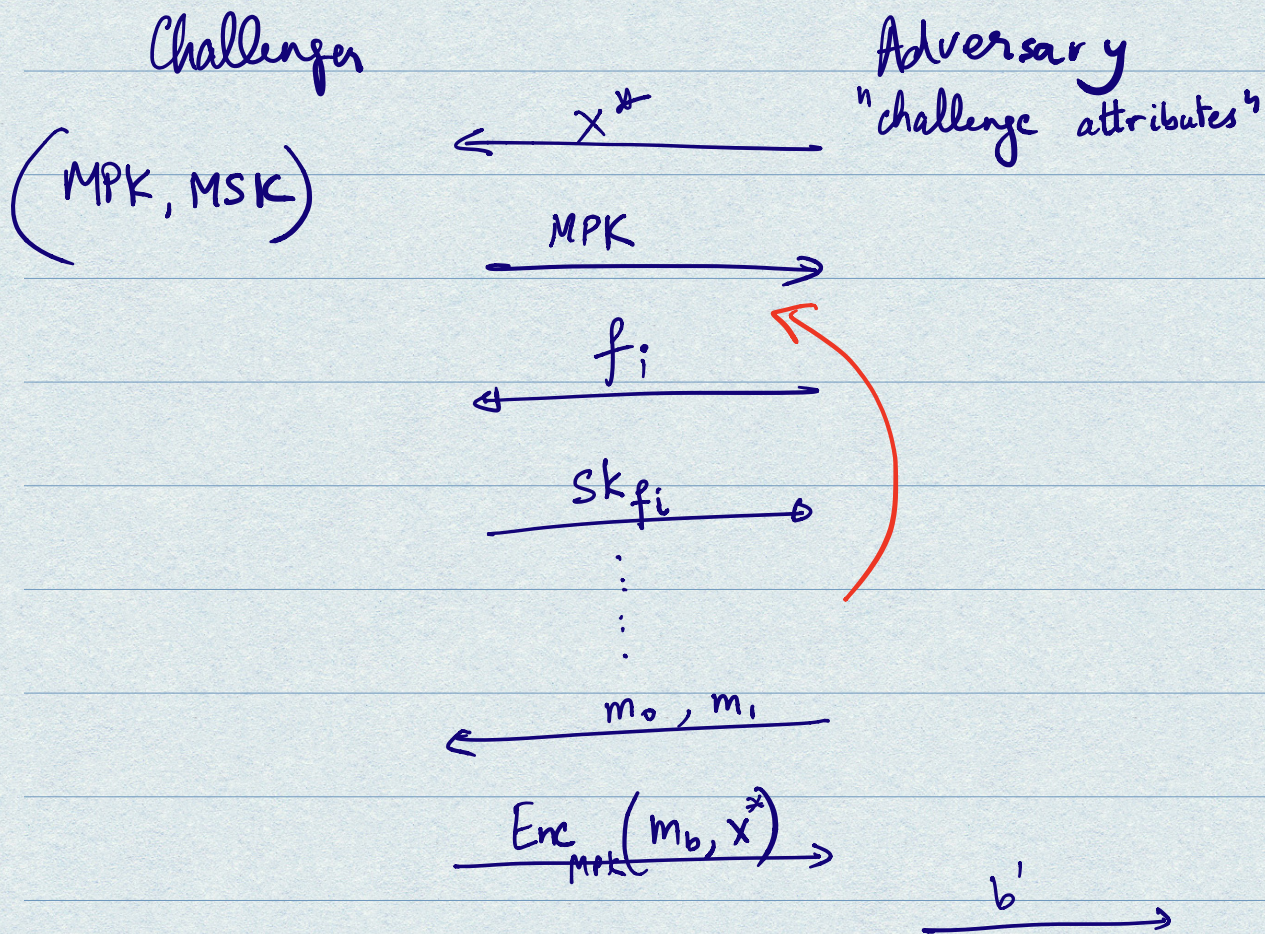 Challenger Adversary
x* "challenge attributes"
(MPK, MSK)
MPK
f_i
sk_{f_i}
m_0, m_1
Enc_{MPK}(m_b, x*)
b'